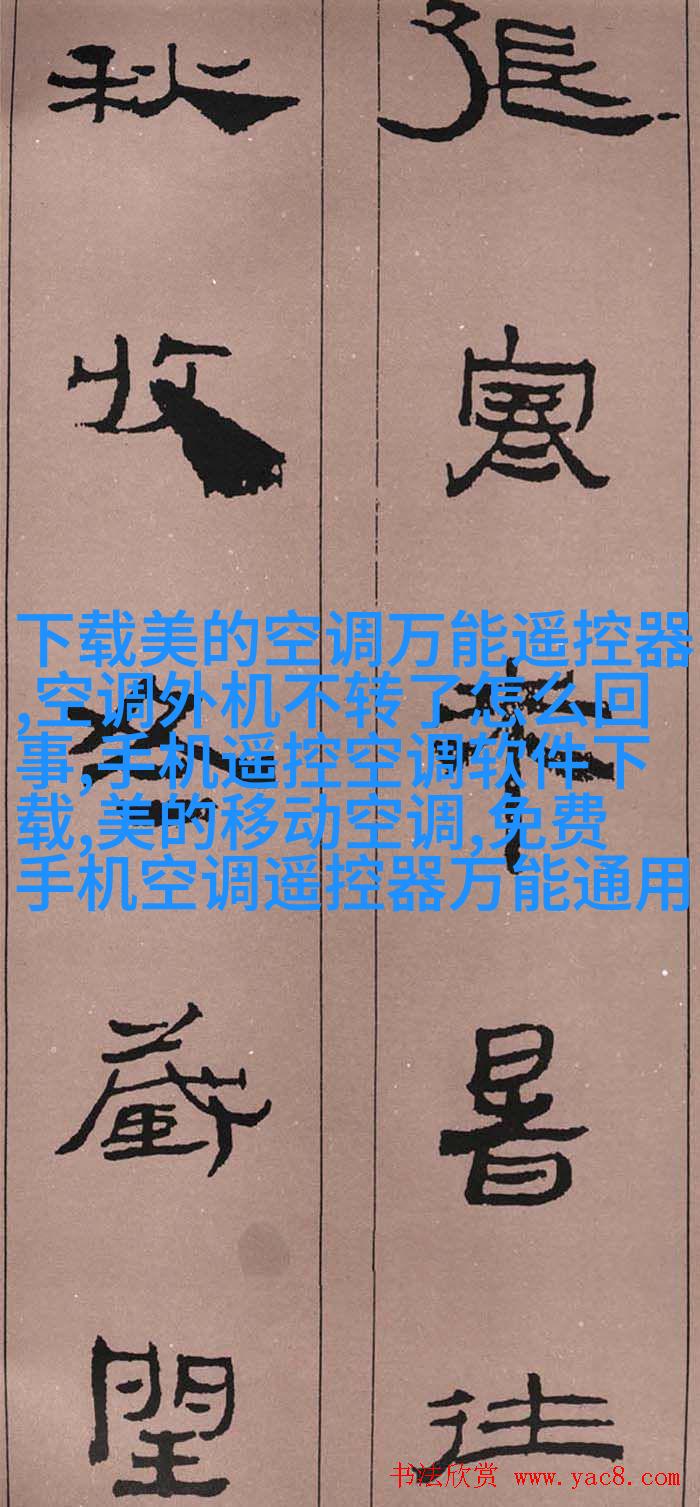 張寒來暑往
秋收冬藏閏
下载美的空调万能遥控器
,空调外机不转了怎么回
事,手机遥控空调软件下
载,美的移动空调,免费
手机空调遥控器万能通用
书法欣赏 www.yac8.com